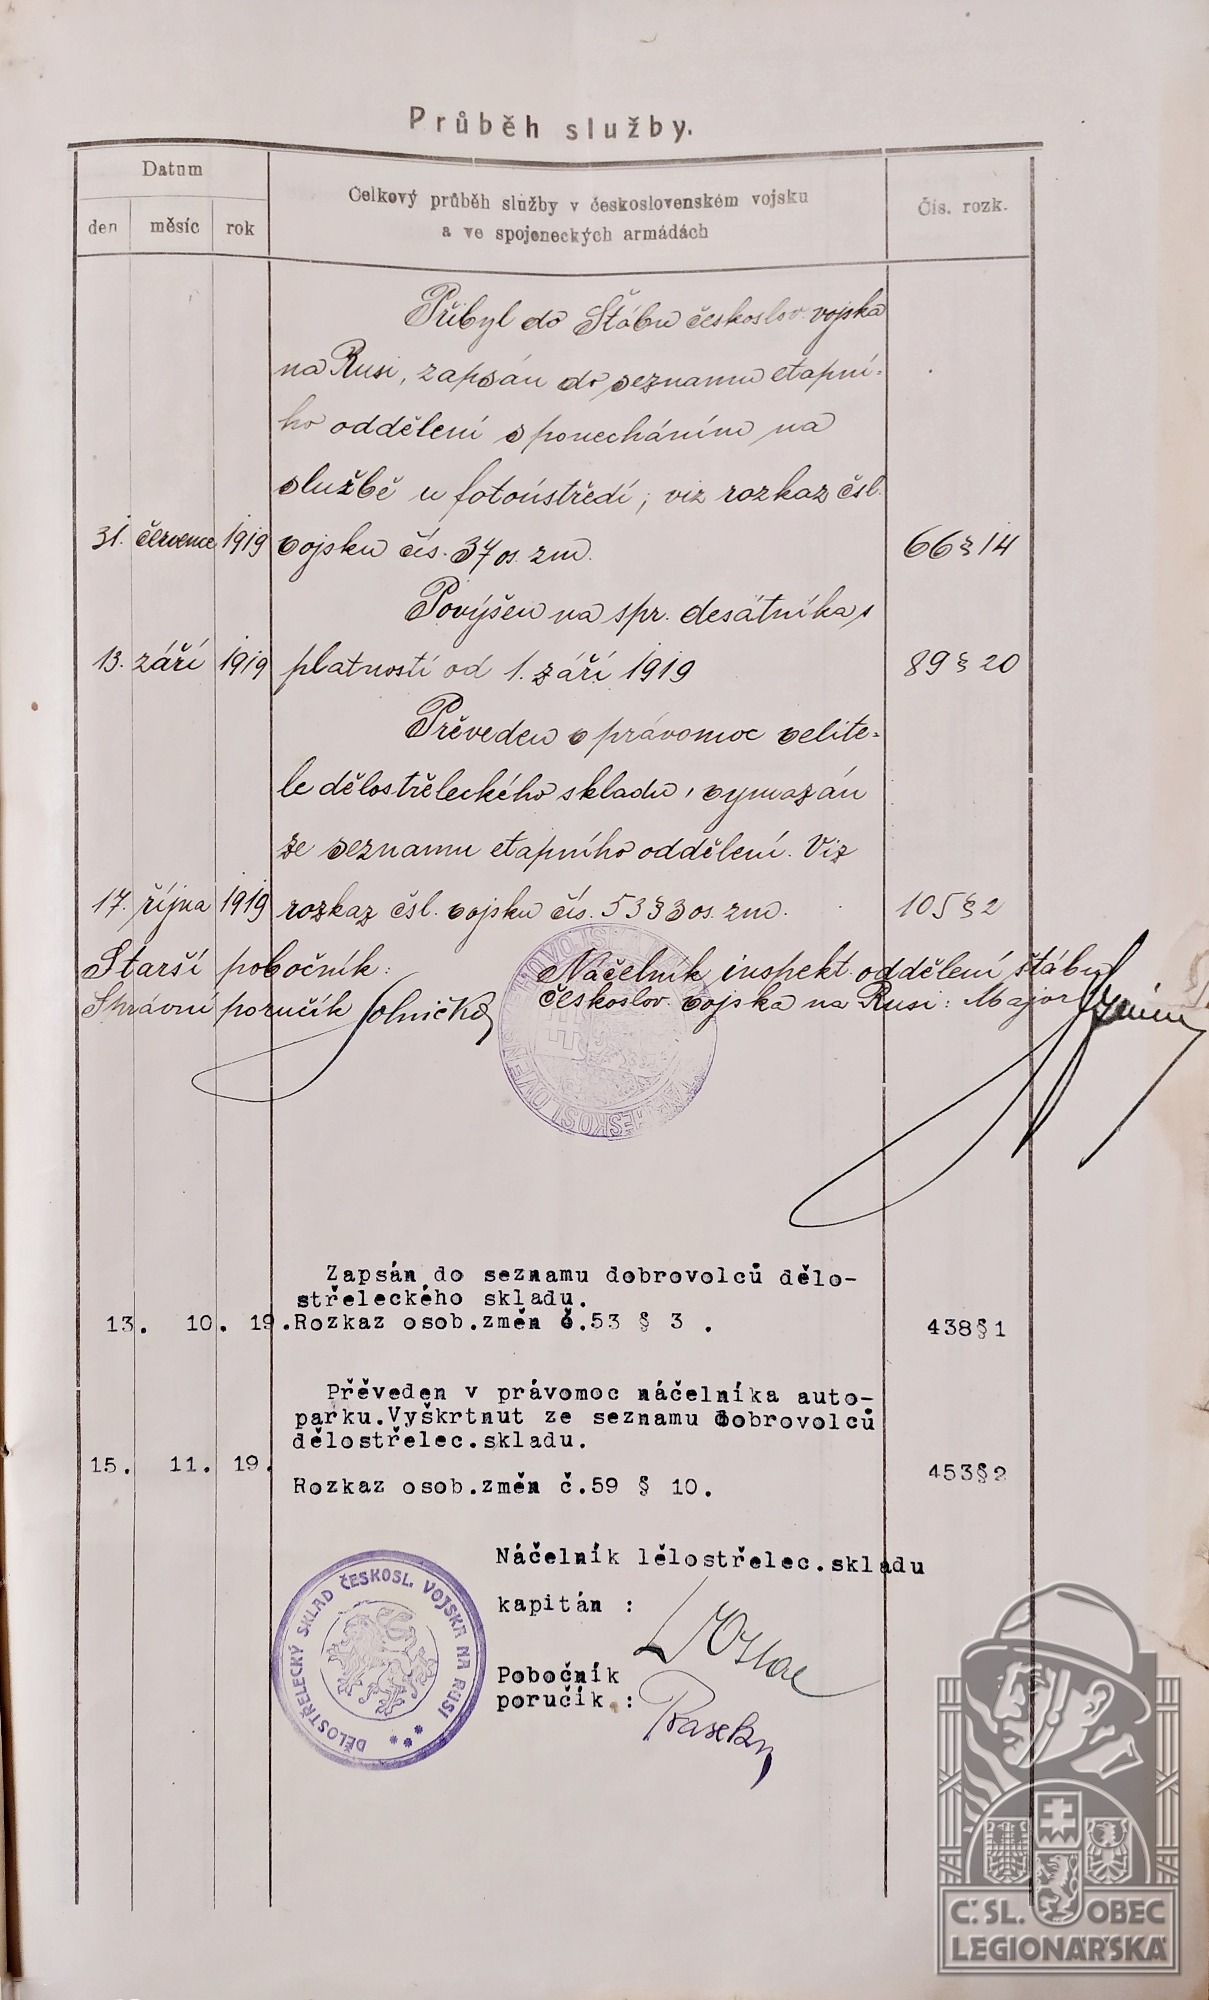 Průběh služby.
Datum
den měsíc rok
Celkový průběh služby v československém vojsku
a ve spojeneckých armádách
Čís. rozk.
Přibyl do Štábu českoslov. vojska
na Rusi, zapsán do seznamu etapní-
ho oddělení s ponecháním na
službě u fotoústředí, viz rozkaz čsl.
31. července 1919 vojsku čís. 37 os. zm. 66 § 14
Povýšen na spr. desátníka s
13. září 1919 platností od 1. září 1919 89 § 20
Převeden v právomoc velite-
le dělostřeleckého skladu, vymazán
ze seznamu etapního oddělení. Viz
17. října 1919 rozkaz čsl. vojsku čís. 53 § 3 os. zm. 105 § 2
Starší pobočník: Náčelník inspekt. oddělení štábu
Správní poručík českoslov. vojska na Rusi: Major
Zapsán do seznamu dobrovolců dělo-
střeleckého skladu.
13. 10. 19. Rozkaz osob.změn č.53 § 3 . 438§1
Převeden v právomoc náčelníka auto-
parku.Vyškrtnut ze seznamu dobrovolců
dělostřelec.skladu.
15. 11. 19. 453§2
Rozkaz osob.změn č.59 § 10.
Náčelník lělostřelec.skladu
kapitán :
Pobočník
poručík :
DĚLOSTŘELECKÝ SKLAD ČESKOSL. VOJSKA NA RUSI
Č.SL. OBEC
LEGIONÁŘSKÁ